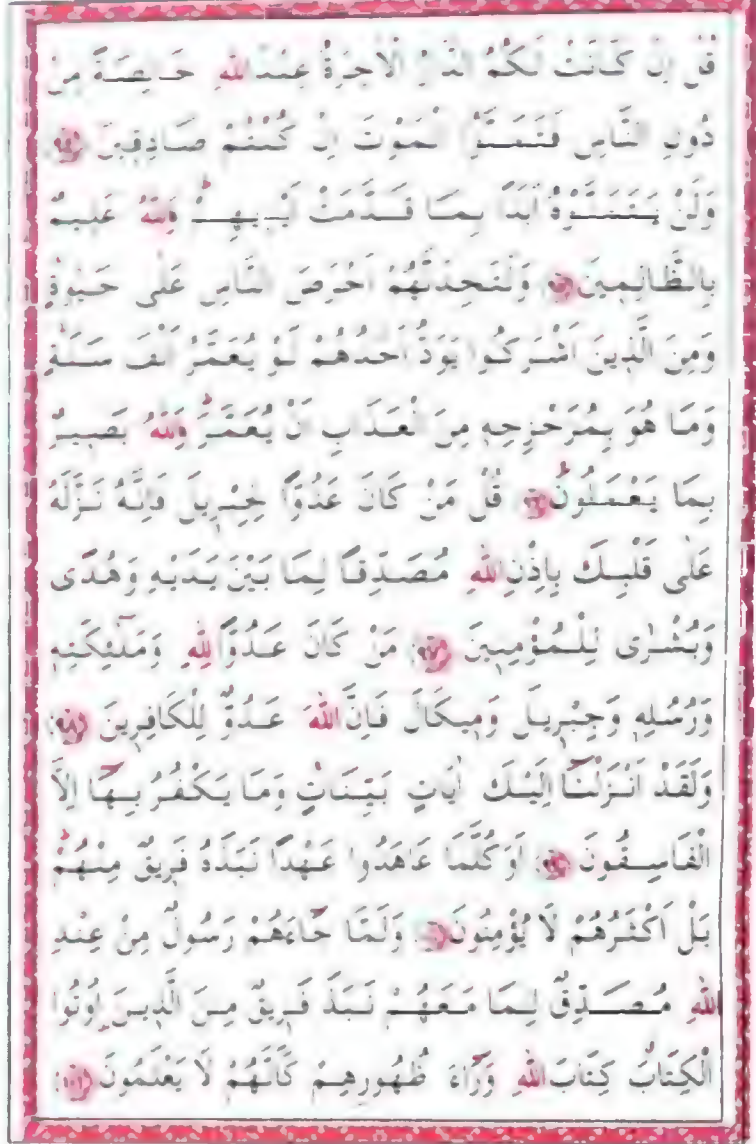 قُلْ اِنْ كَانَتْ لَكُمُ الدَّارُ الْاٰخِرَةُ عِنْدَ اللّٰهِ خَالِصَةً مِنْ
دُونِ النَّاسِ فَتَمَنَّوُا الْمَوْتَ اِنْ كُنْتُمْ صَادِقِينَ ﴿٩٤﴾
وَلَنْ يَتَمَنَّوْهُ اَبَدًا بِمَا قَدَّمَتْ اَيْدِيهِمْ وَاللّٰهُ عَلِيمٌ
بِالظَّالِمِينَ ﴿٩٥﴾ وَلَتَجِدَنَّهُمْ اَحْرَصَ النَّاسِ عَلٰى حَيٰوةٍ
وَمِنَ الَّذِينَ اَشْرَكُوا يَوَدُّ اَحَدُهُمْ لَوْ يُعَمَّرُ اَلْفَ سَنَةٍ
وَمَا هُوَ بِمُزَحْزِحِهِ مِنَ الْعَذَابِ اَنْ يُعَمَّرَ وَاللّٰهُ بَصِيرٌ
بِمَا يَعْمَلُونَ ﴿٩٦﴾ قُلْ مَنْ كَانَ عَدُوًّا لِجِبْرِيلَ فَاِنَّهُ نَزَّلَهُ
عَلٰى قَلْبِكَ بِاِذْنِ اللّٰهِ مُصَدِّقًا لِمَا بَيْنَ يَدَيْهِ وَهُدًى
وَبُشْرٰى لِلْمُؤْمِنِينَ ﴿٩٧﴾ مَنْ كَانَ عَدُوًّا لِلّٰهِ وَمَلٰٓئِكَتِهِ
وَرُسُلِهِ وَجِبْرِيلَ وَمِيكَالَ فَاِنَّ اللّٰهَ عَدُوٌّ لِلْكَافِرِينَ ﴿٩٨﴾
وَلَقَدْ اَنْزَلْنَٓا اِلَيْكَ اٰيَاتٍ بَيِّنَاتٍ وَمَا يَكْفُرُ بِهَٓا اِلَّا
الْفَاسِقُونَ ﴿٩٩﴾ اَوَكُلَّمَا عَاهَدُوا عَهْدًا نَبَذَهُ فَرِيقٌ مِنْهُمْ
بَلْ اَكْثَرُهُمْ لَا يُؤْمِنُونَ ﴿١٠٠﴾ وَلَمَّا جَٓاءَهُمْ رَسُولٌ مِنْ عِنْدِ
اللّٰهِ مُصَدِّقٌ لِمَا مَعَهُمْ نَبَذَ فَرِيقٌ مِنَ الَّذِينَ اُوتُوا
الْكِتَابَ كِتَابَ اللّٰهِ وَرَٓاءَ ظُهُورِهِمْ كَاَنَّهُمْ لَا يَعْلَمُونَ ﴿١٠١﴾